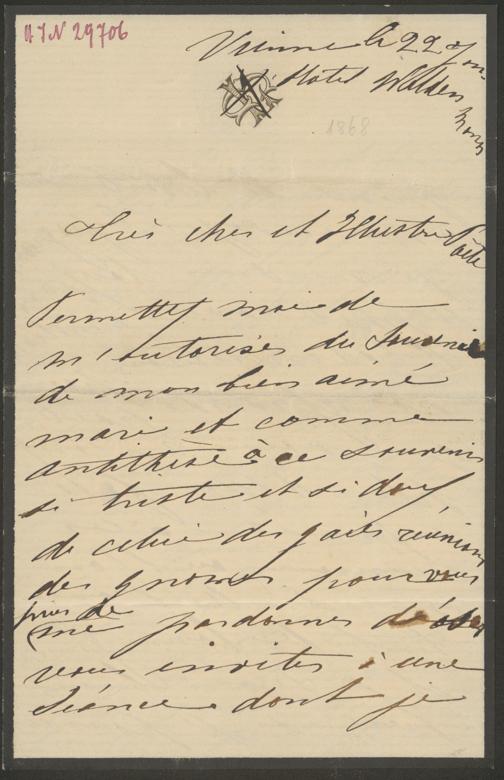 A I N 29706
Vienne le 22 Jan
Hôtel Walken
1868
très cher et Illustre Poète
Permettez moi de
m'autoriser du Souvenir
de mon bien aimé
mari et comme
antithèse à ce souvenir
si triste et si doux
de celui des gaies réunions
des gnomes pour vous
prier de
me pardonner d'oser
vous inviter à une
Séance dont je